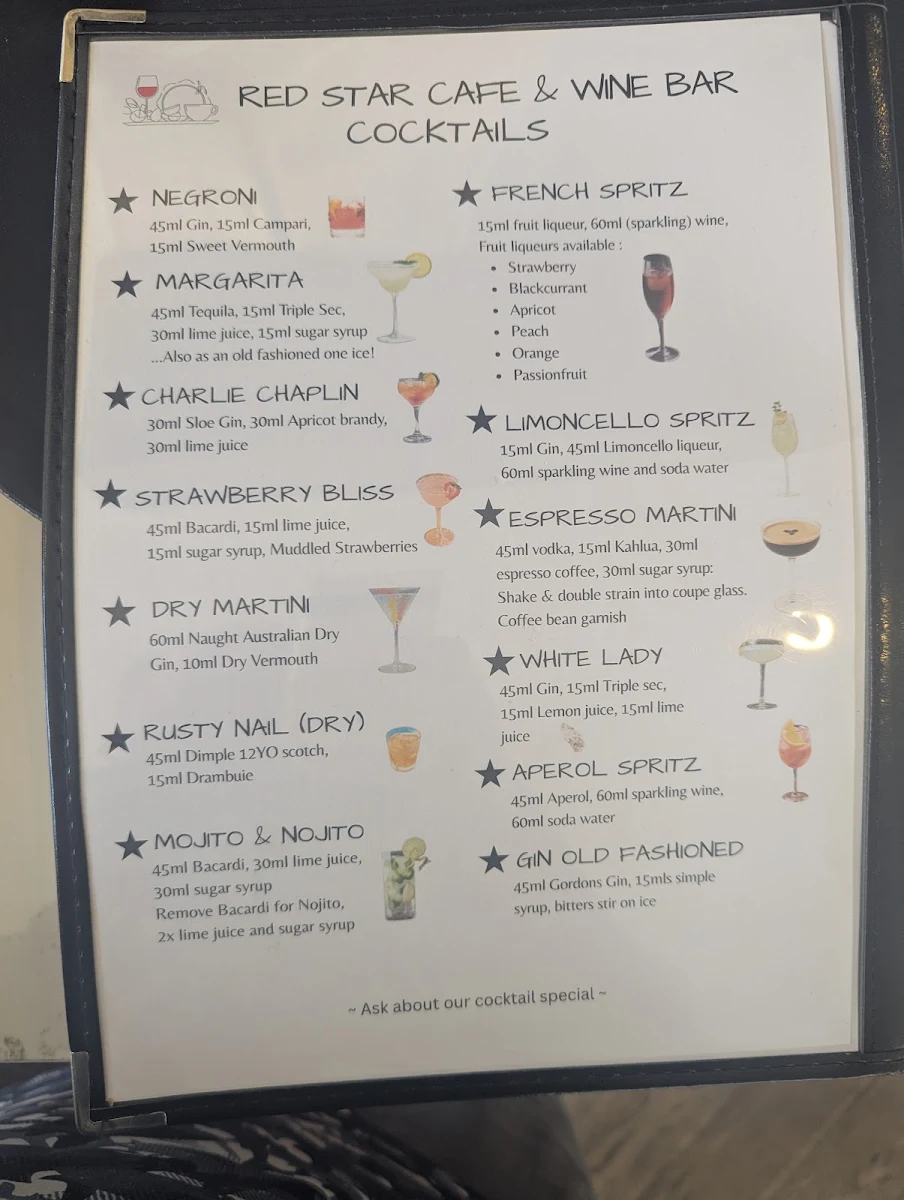 RED STAR CAFE & WINE BAR
COCKTAILS
NEGRONI
45ml Gin, 15ml Campari,
15ml Sweet Vermouth
MARGARITA
45ml Tequila, 15ml Triple Sec,
30ml lime juice, 15ml sugar syrup
...Also as an old fashioned one ice!
CHARLIE CHAPLIN
30ml Sloe Gin, 30ml Apricot brandy,
30ml lime juice
STRAWBERRY BLISS
45ml Bacardi, 15ml lime juice,
15ml sugar syrup, Muddled Strawberries
DRY MARTINI
60ml Naught Australian Dry
Gin, 10ml Dry Vermouth
RUSTY NAIL (DRY)
45ml Dimple 12YO scotch,
15ml Drambuie
MOJITO & NOJITO
45ml Bacardi, 30ml lime juice,
30ml sugar syrup
Remove Bacardi for Nojito,
2x lime juice and sugar syrup
FRENCH SPRITZ
15ml fruit liqueur, 60ml (sparkling) wine,
Fruit liqueurs available :
• Strawberry
• Blackcurrant
• Apricot
• Peach
• Orange
• Passionfruit
LIMONCELLO SPRITZ
15ml Gin, 45ml Limoncello liqueur,
60ml sparkling wine and soda water
ESPRESSO MARTINI
45ml vodka, 15ml Kahlua, 30ml
espresso coffee, 30ml sugar syrup:
Shake & double strain into coupe glass.
Coffee bean garnish
WHITE LADY
45ml Gin, 15ml Triple sec,
15ml Lemon juice, 15ml lime
juice
APEROL SPRITZ
45ml Aperol, 60ml sparkling wine,
60ml soda water
GIN OLD FASHIONED
45ml Gordons Gin, 15mls simple
syrup, bitters stir on ice
~ Ask about our cocktail special ~